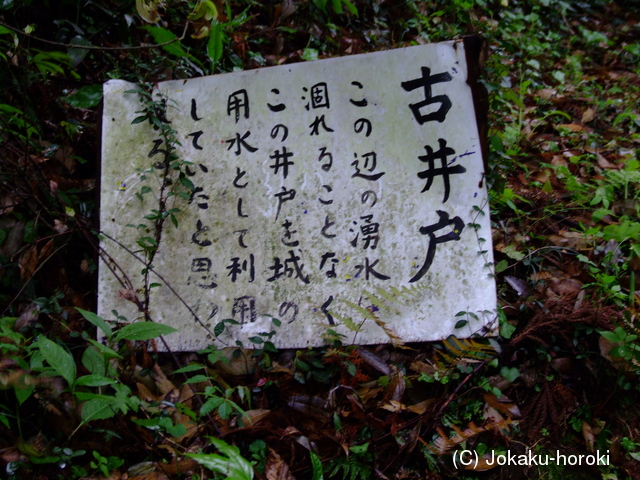 古井戸
この辺の湧水は
涸れることなく
この井戸を城の
用水として利用
していたと思わ
れる
(C) Jokaku-horoki